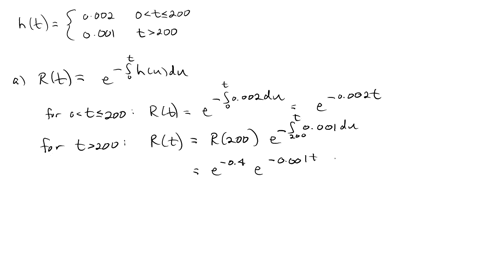 h(t) = { 0.002 0<t≤200
0.001 t>200
a) R(t) = e^{-∫_0^t h(u)du}
for 0<t≤200: R(t) = e^{-∫_0^t 0.002du} = e^{-0.002t}
for t>200: R(t) = R(200) e^{-∫_{200}^t 0.001du}
= e^{-0.4} e^{-0.001t}